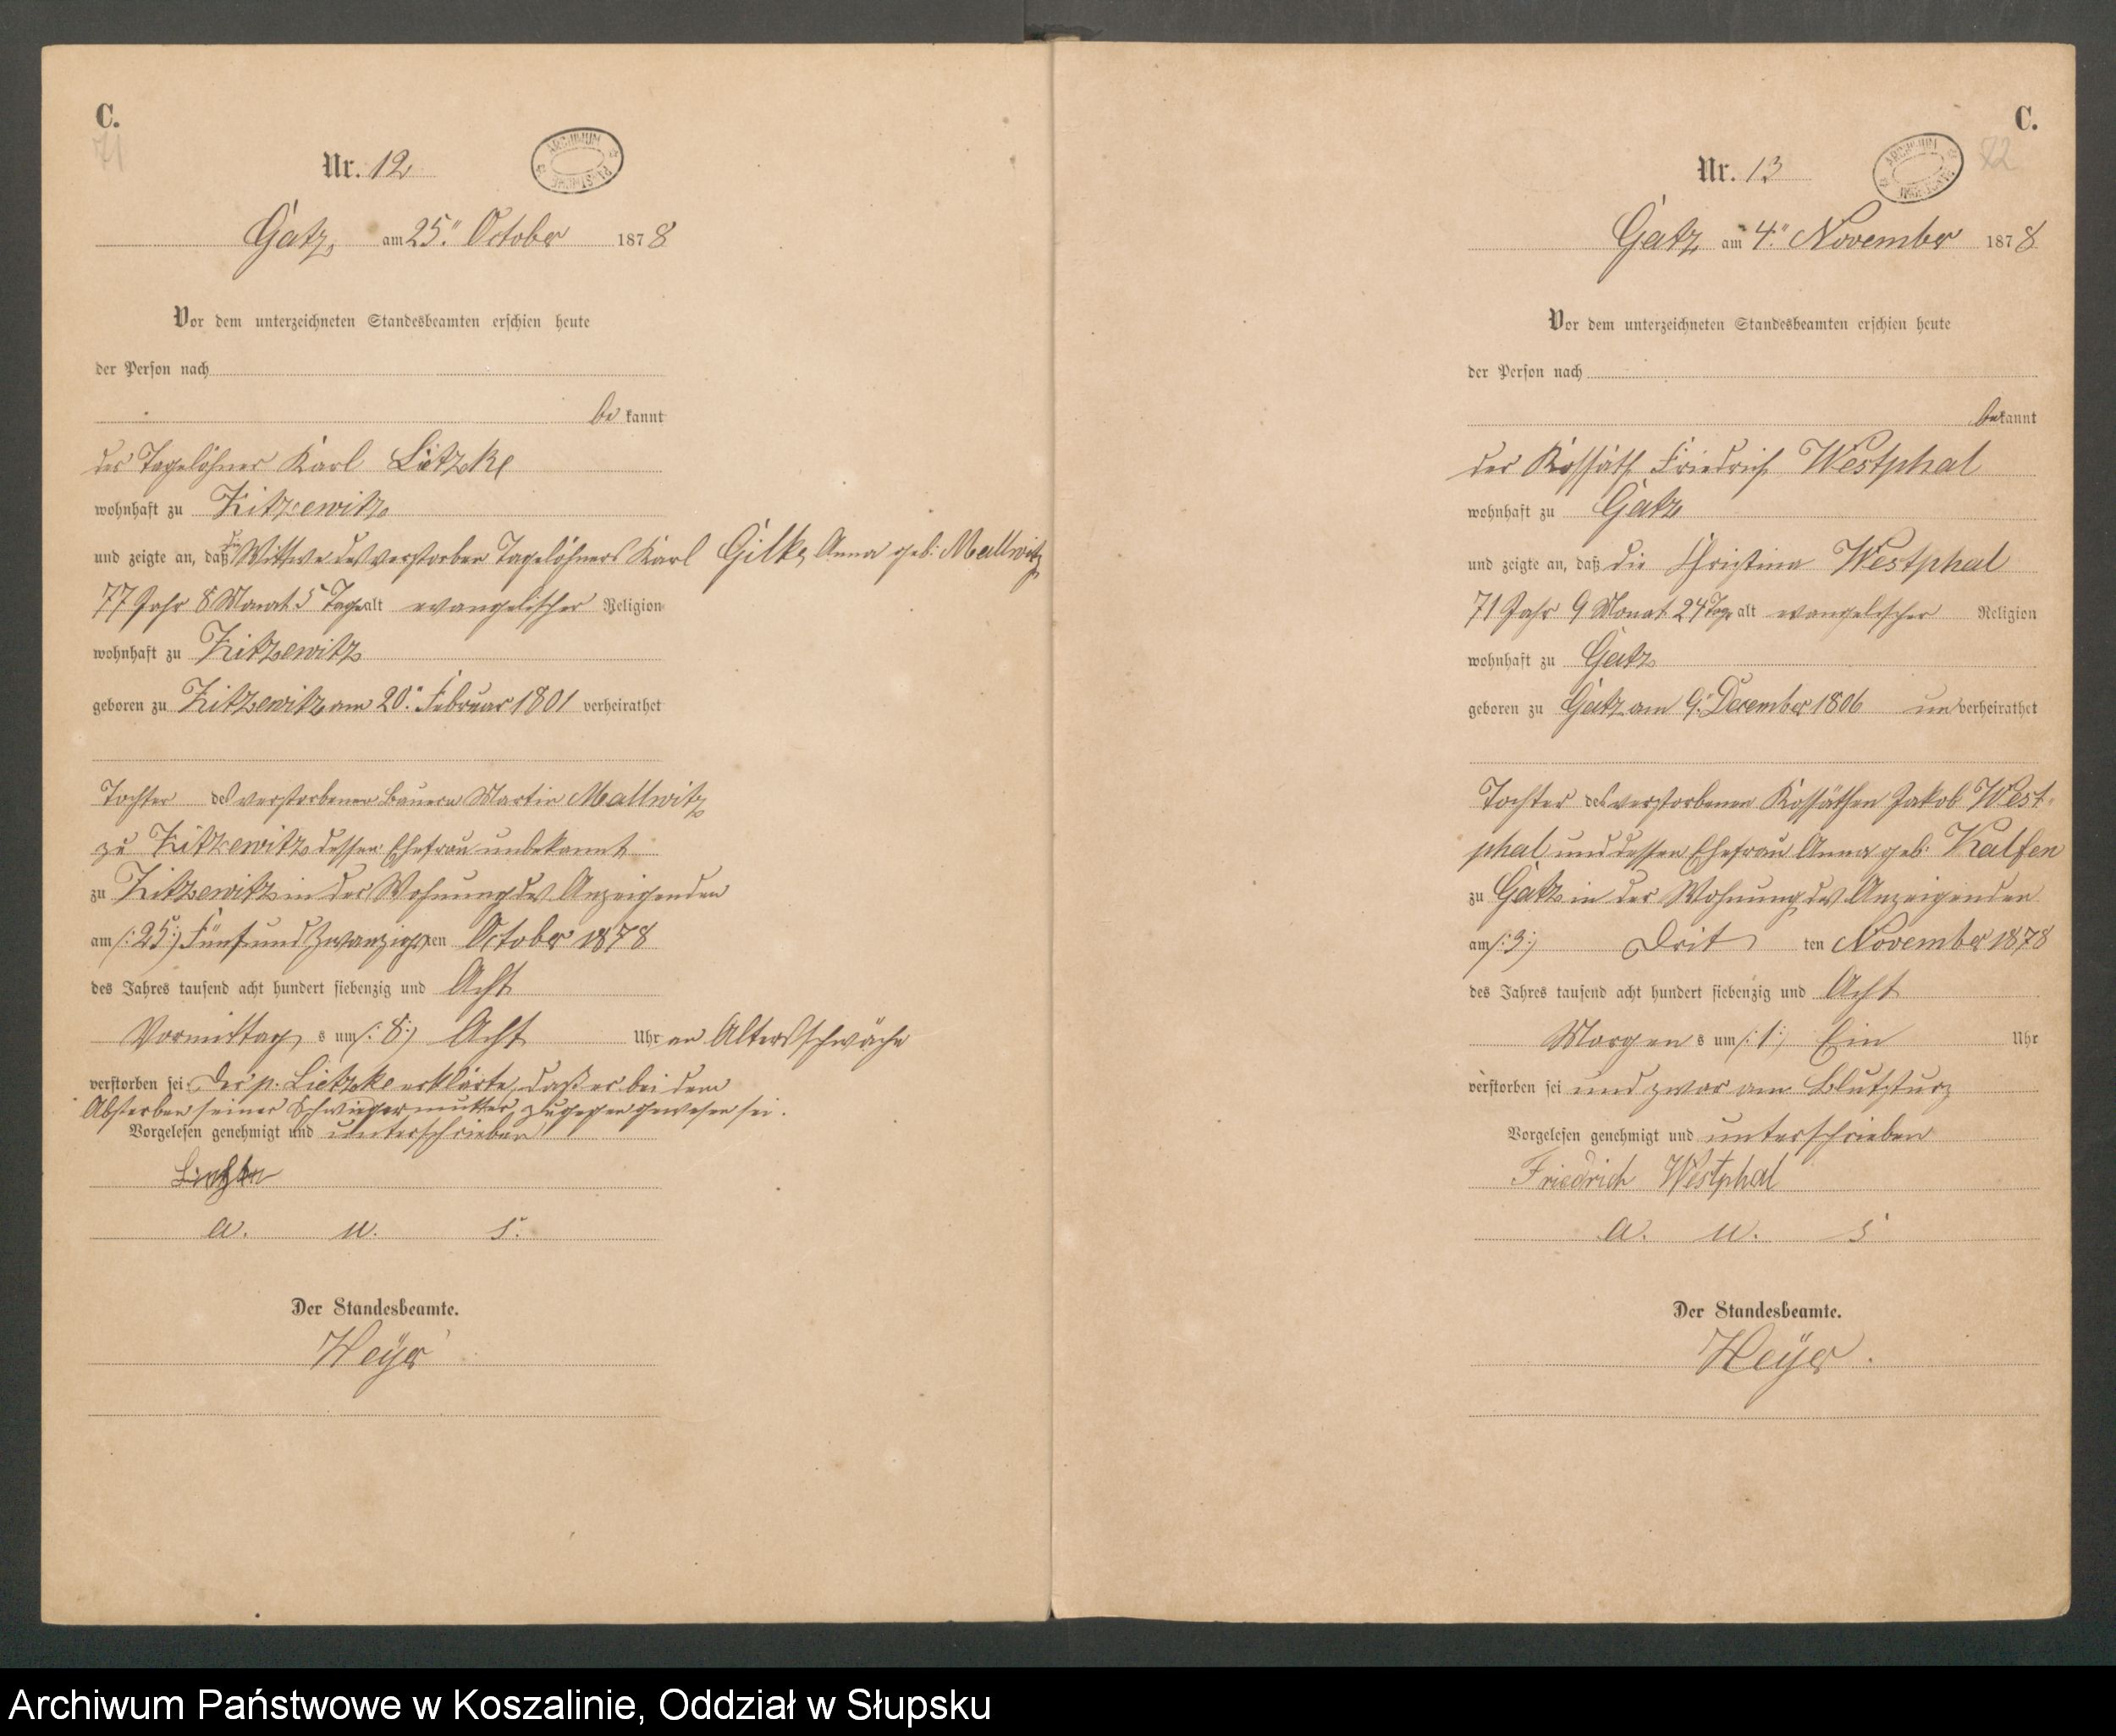 C.
71
Nr. 12
ARCHIWUM PAŃSTWOWE
Gatz, am 25." October 1878
Vor dem unterzeichneten Standesbeamten erschien heute
der Person nach
bekannt
der Tagelöhner Karl Lietzke
wohnhaft zu Zitzewitz
und zeigte an, daß die Wittwe des verstorben Tagelöhners Karl Gilke, Anna geb: Mallwitz
77 Jahr 8 Monat 5 Tage alt evangelischer Religion
wohnhaft zu Zitzewitz
geboren zu Zitzewitz am 20." Februar 1801 verheirathet
Tochter des verstorbenen Bauern Martin Mallwitz
zu Zitzewitz dessen Ehefrau unbekannt
zu Zitzewitz in der Wohnung des Anzeigenden
am /:25:/ Fünf und Zwanzigsten October 1878
des Jahres tausend acht hundert siebenzig und Acht
Vormittags um /:8:/ Acht Uhr an Altersschwäche
verstorben sei. Der p. Lietzke erklärte, daß er bei dem
Absterben seiner Schwiegermutter zugegen gewesen sei.
Vorgelesen genehmigt und unterschrieben
a. u. s.
Der Standesbeamte.
Heÿer
C.
72
Nr. 13
Gatz am 4." November 1878
Vor dem unterzeichneten Standesbeamten erschien heute
der Person nach
bekannt
der Kossäth Friedrich Westphal
wohnhaft zu Gatz
und zeigte an, daß die Christine Westphal
71 Jahr 9 Monat 24 Tage alt evangelischer Religion
wohnhaft zu Gatz
geboren zu Gatz am 9. December 1806 unverheirathet
Tochter des verstorbenen Kossäthen Jakob West-
phal und dessen Ehefrau Anna geb: Kalfen
zu Gatz in der Wohnung des Anzeigenden
am /:3:/ Dritten November 1878
des Jahres tausend acht hundert siebenzig und Acht
Morgens um /:1:/ Ein Uhr
verstorben sei und zwar am Blutsturz
Vorgelesen genehmigt und unterschrieben
Friedrich Westphal
a. u. s
Der Standesbeamte.
Heÿer.
Archiwum Państwowe w Koszalinie, Oddział w Słupsku